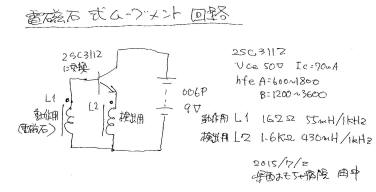 電磁石式ムーブメント 回路
2SC3112
に交換
L1
動作用
(電磁石)
L2
検出用
006P
9V
2SC3112
Vce 50V Ic=70mA
hfe A:600~1800
B:1200~3600
動作用 L1 162Ω 55mH/1kHz
検出用 L2 1.6KΩ 430mH/1kHz
2015/7/2
おもちゃ病院 田中